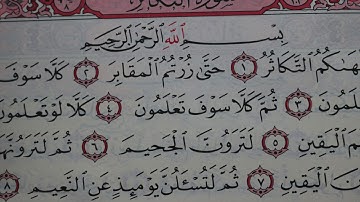 سورة التكاثر
بِسْمِ اللَّهِ الرَّحْمَٰنِ الرَّحِيمِ
هَاكُمُ التَّكَاثُرُ ١ حَتَّىٰ زُرْتُمُ الْمَقَابِرَ ٢ كَلَّا سَوْفَ
لَمُونَ ٣ ثُمَّ كَلَّا سَوْفَ تَعْلَمُونَ ٤ كَلَّا لَوْ تَعْلَمُونَ
مَ الْيَقِينِ ٥ لَتَرَوُنَّ الْجَحِيمَ ٦ ثُمَّ لَتَرَوُنَّهَا
نَ الْيَقِينِ ٧ ثُمَّ لَتُسْأَلُنَّ يَوْمَئِذٍ عَنِ النَّعِيمِ ٨